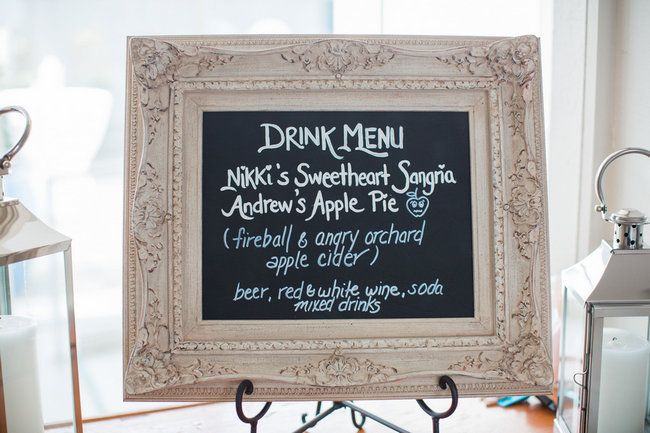 DRINK MENU
Nikki's Sweetheart Sangria
Andrew's Apple Pie
(fireball & angry orchard
apple cider)
beer, red & white wine, soda
mixed drinks